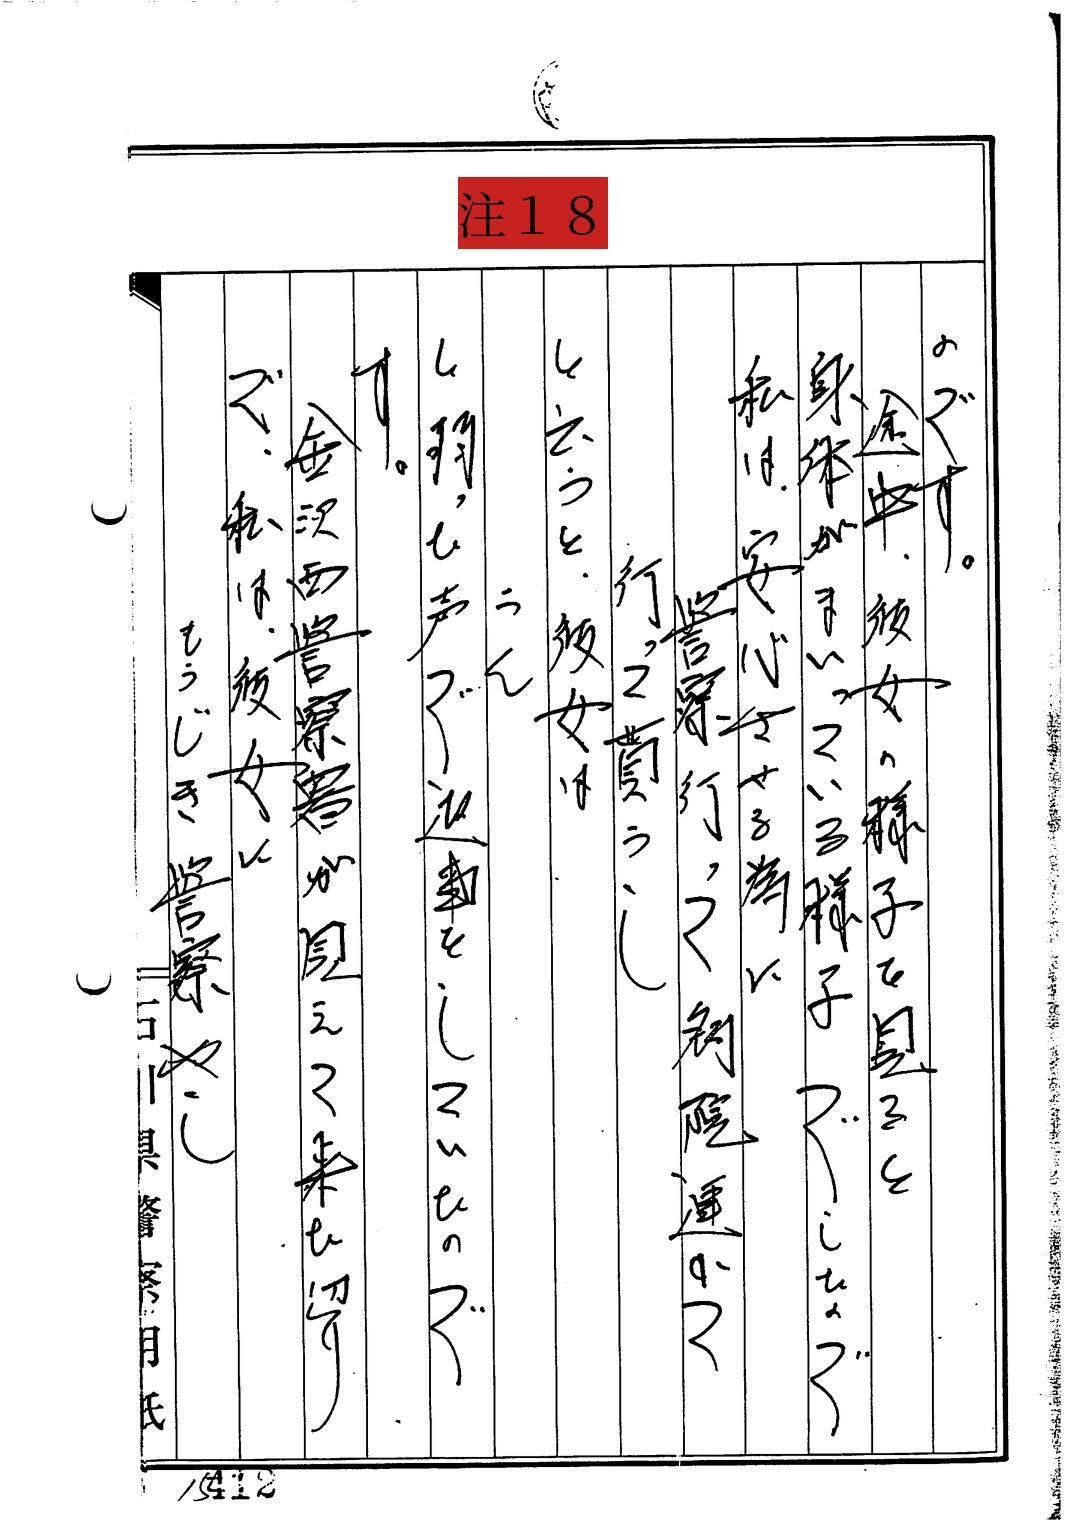 注１８
のです。
途中、彼女の様子を見ると
身体がまいっている様子でしたので
私は、安心させる為に
警察行って病院運んで
行って貰うし
と云うと、彼女は
うん
と弱った声で返事をしていたので
す。
金沢西警察署が見えて来た辺り
で、私は、彼女に
もうじき警察やし
石川県警察用紙
412